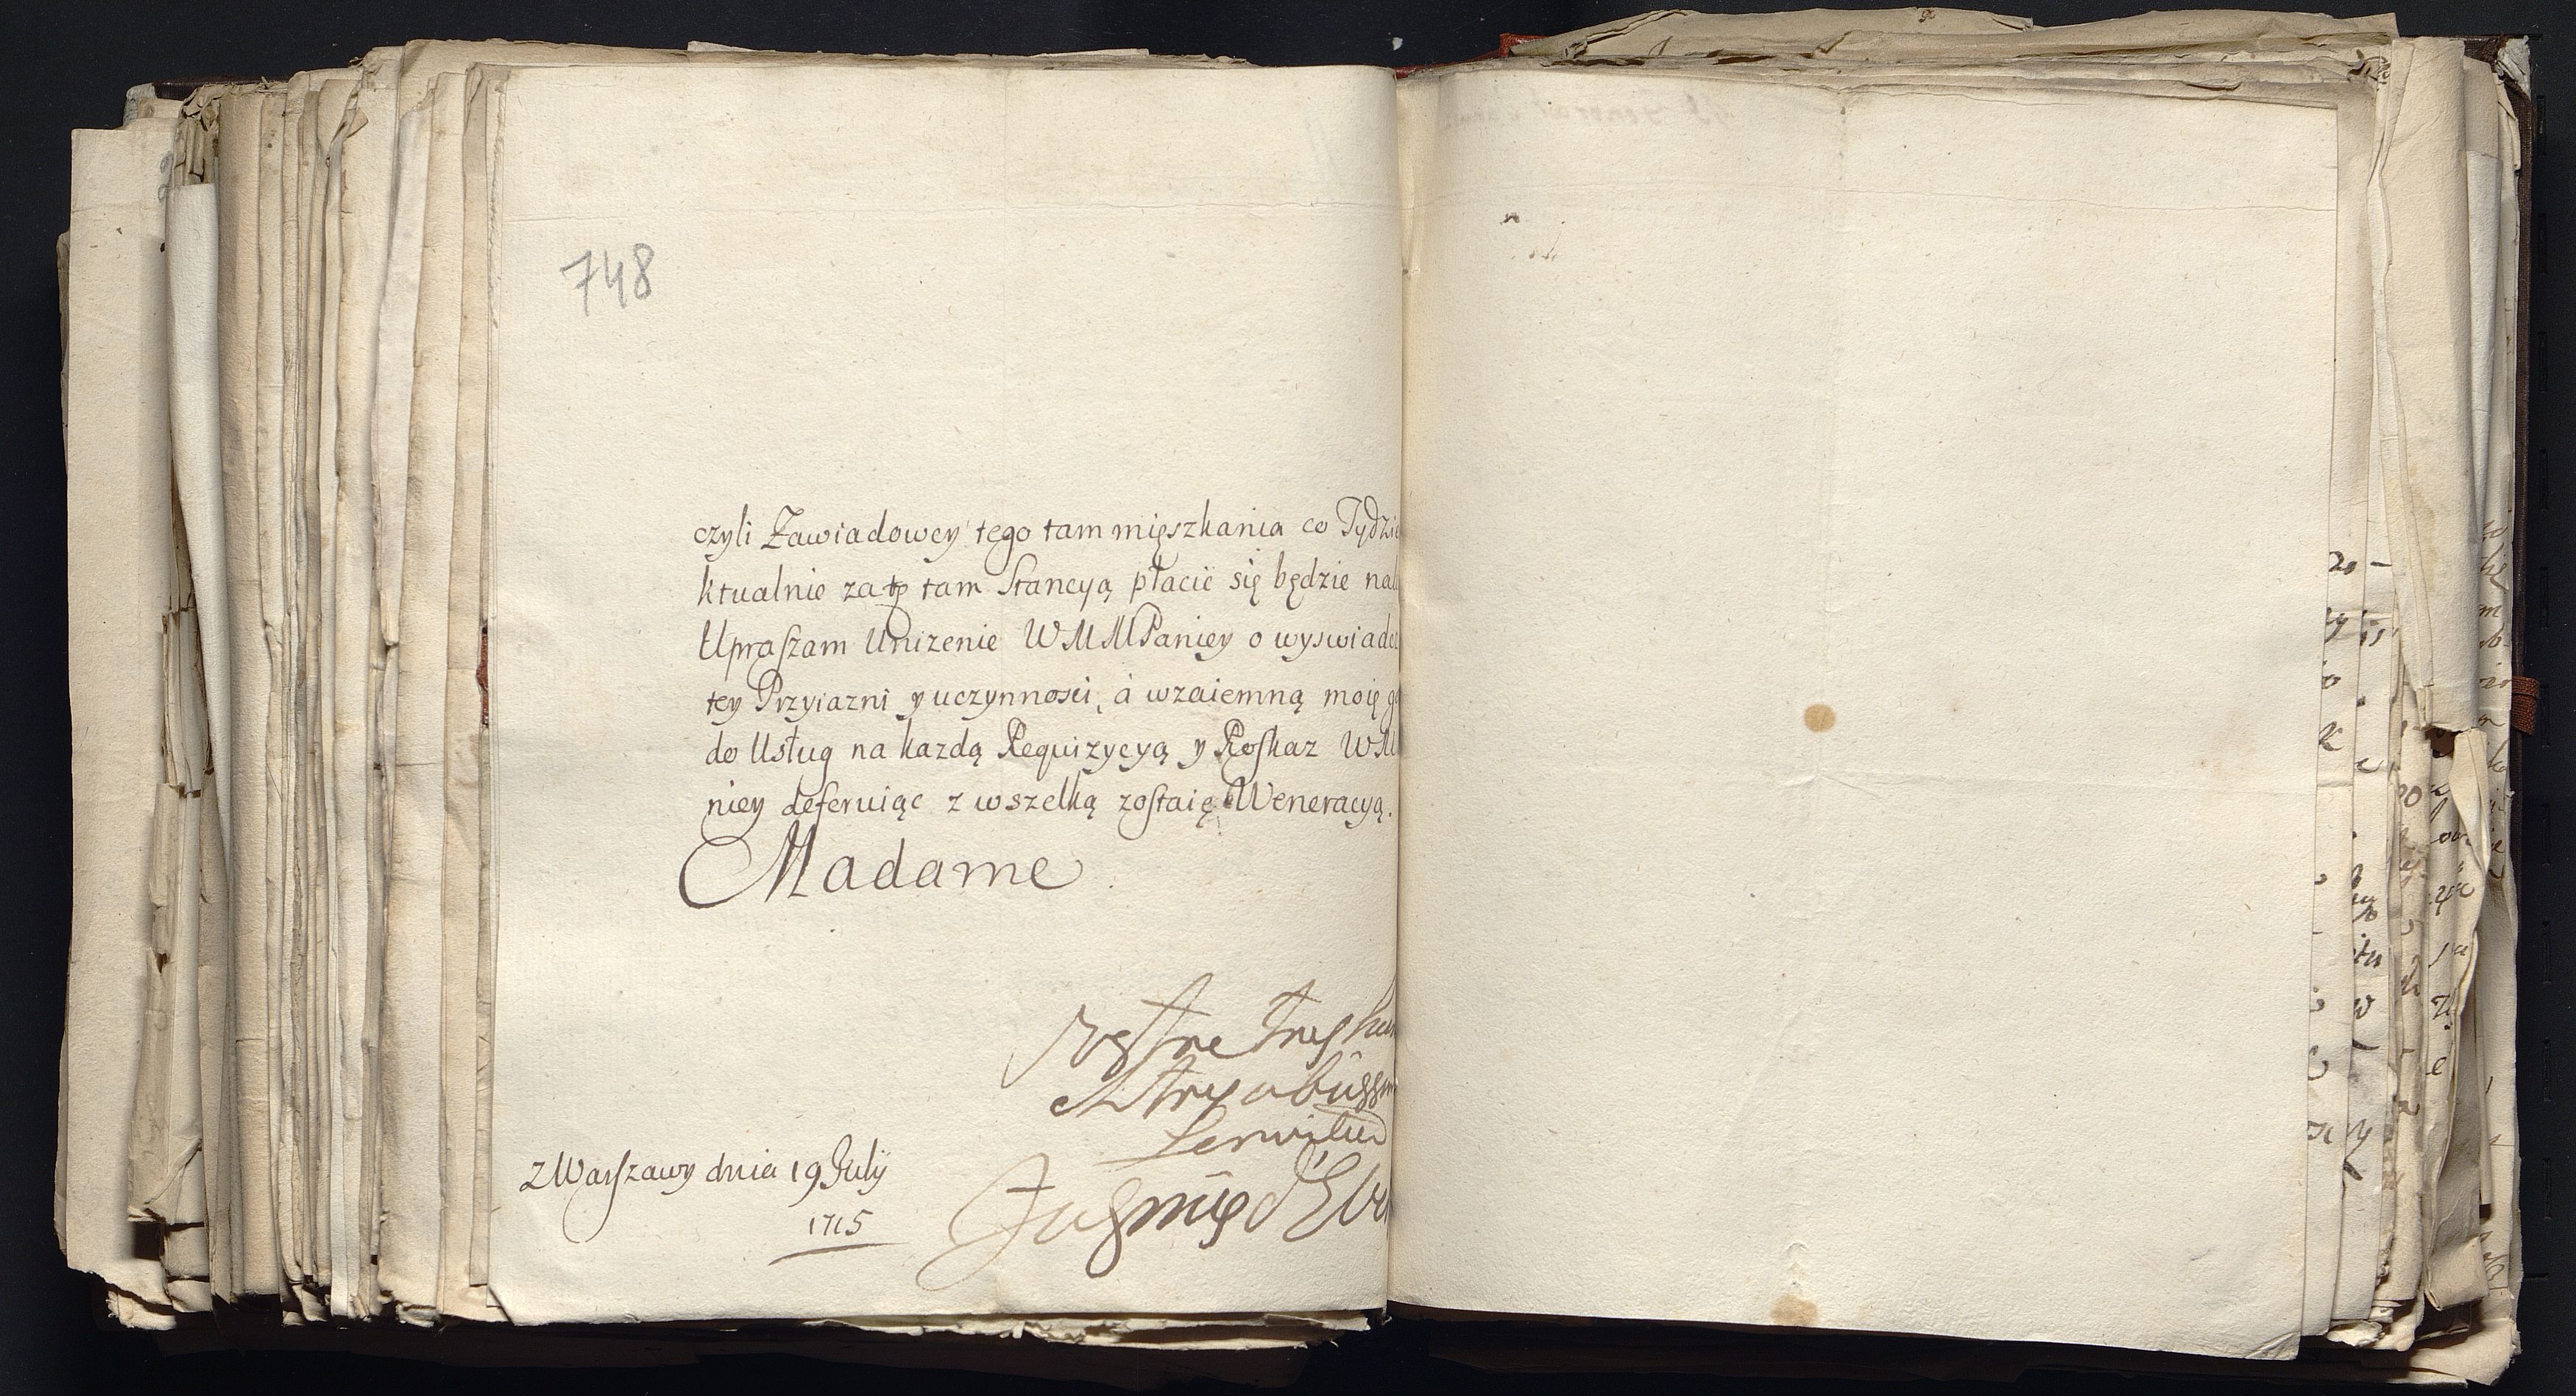 748
czyli Zawiadowcy tego tam mięszkania co Tydzie
ktualnie za tę tam Stancyą płacic się będzie nal
Upraszam Unizenie WMMPaniey o wyswiadc
tey Przyiazni y uczynnosci, á wzaiemną moię g
do Usług na kazdą Requizycyą y Roskaz WM
niey deferuiąc z wszelką zostaię Weneracyą.
Madame
Votre tres hum
et tres obeiss
Servite
z Warszawy dnia 19 July
1715